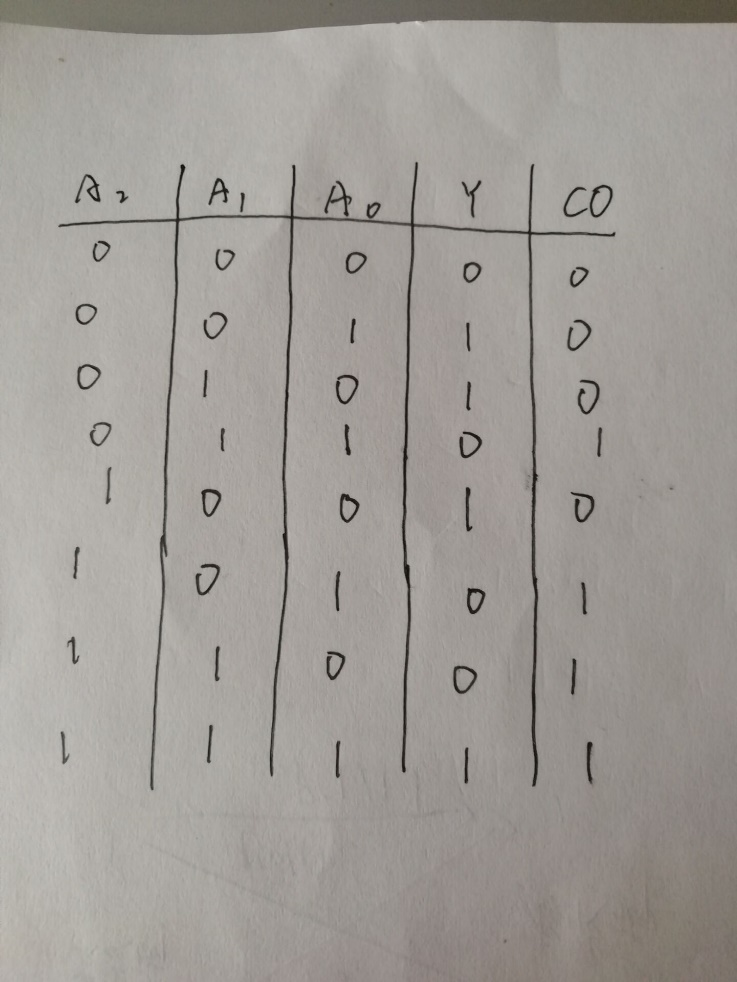 A₂ A₁ A₀ Y CO
0 0 0 0 0
0 0 1 1 0
0 1 0 1 0
0 1 1 0 1
1 0 0 1 0
1 0 1 0 1
1 1 0 0 1
1 1 1 1 1